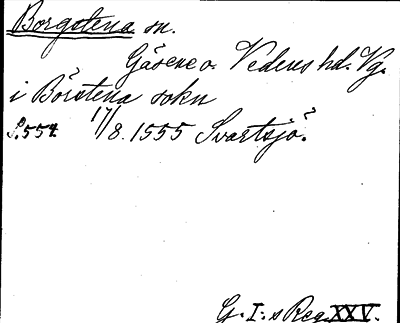 Borgstena sn.
Gäsene o. Vedens hd. Vg.
i Börstena sokn
S. 554. 17/8. 1555 Svartsjö.
G. I:s Reg. XXV.